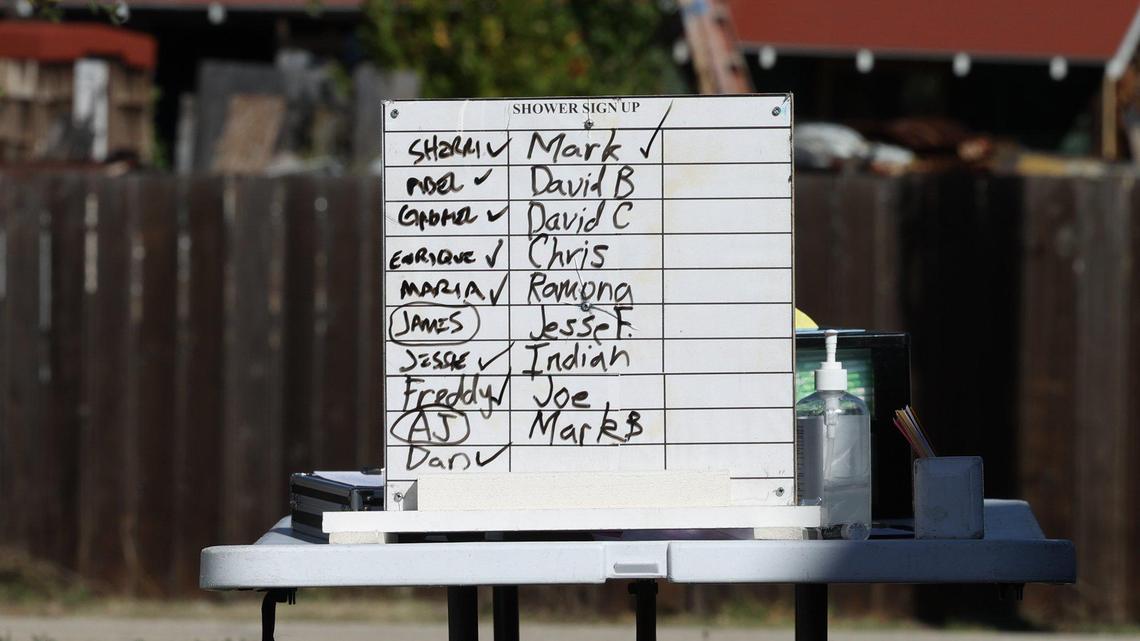 SHOWER SIGN UP
SHERRI ✓ Mark ✓
ABEL ✓ David B
GABRIEL ✓ David C
ENRIQUE ✓ Chris
MARIA ✓ Ramona
JAMES Jesse F.
JESSE ✓ Indian
Freddy ✓ Joe
AJ Mark B
Dan ✓